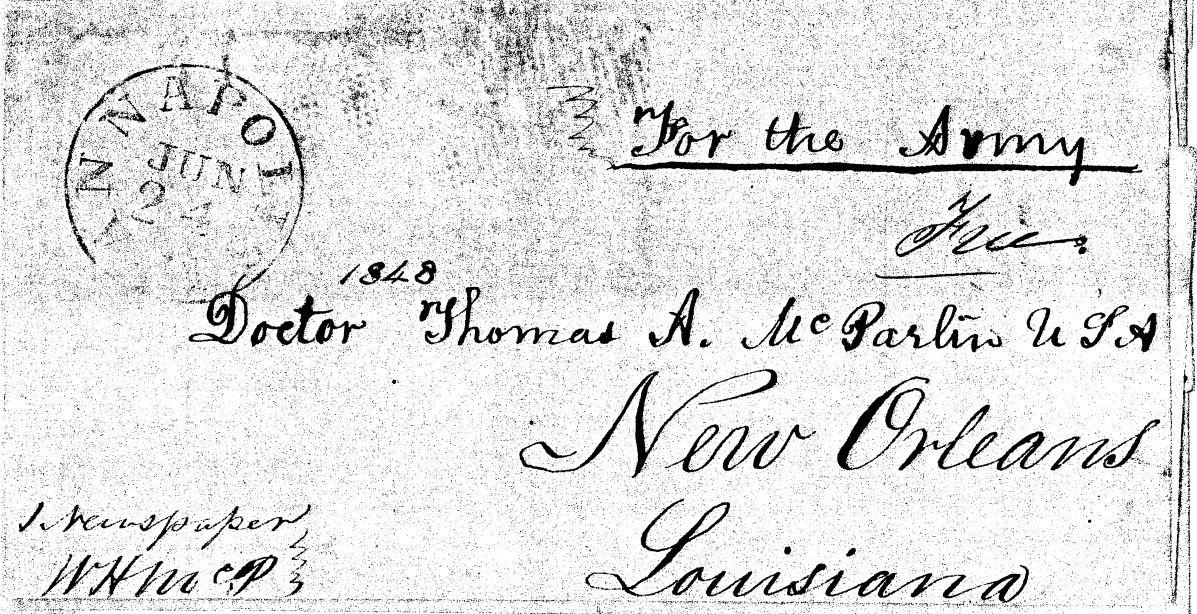 ANNAPOLIS
JUN
24
For the Army
Free.
1848
Doctor Thomas A. McParlin USA
New Orleans
Louisiana
1 Newspaper
WHMcP